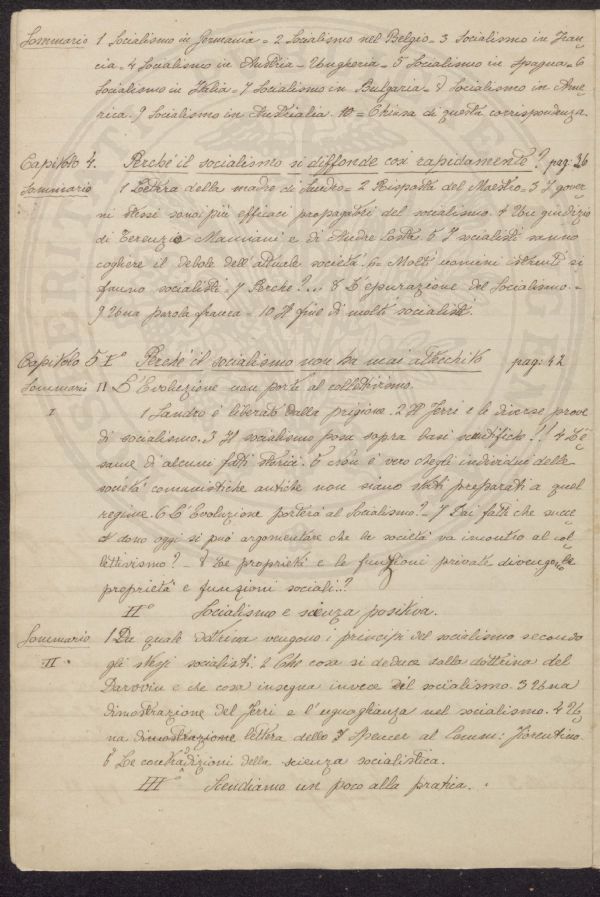 Sommario 1 Socialismo in Germania = 2 Socialismo nel Belgio = 3 Socialismo in Fran-
cia = 4 Socialismo in Austria - Ungheria = 5 Socialismo in Spagna = 6
Socialismo in Italia = 7 Socialismo in Bulgaria = 8 Socialismo in Ame-
rica. 9 Socialismo in Australia. 10 = Chiusa di questa corrispondenza.
Capitolo 4. Perchè il socialismo si diffonde così rapidamente? pag: 36
Sommario 1 Lettera della madre di Sandro = 2 Risposta del Maestro = 3 I gover-
ni stessi sono i più efficaci propagatori del socialismo. 4 Un giudizio
di Terenzio Mamiani e di Andrea Costa. 5 I socialisti sanno
cogliere il debole dell'attuale società. 6 = Molti uomini istruiti si
fanno socialisti - 7 Perchè?... 8 L'epurazione del Socialismo. =
9 Una parola franca = 10 Il fine di molti socialisti.
Capitolo 5 I° Perchè il socialismo non ha mai attecchito pag: 42
Sommario II L'Evoluzione non porta al collettivismo.
I 1 Sandro è liberato dalla prigione. 2 Il Ferri e le diverse prove
di socialismo. 3 Il socialismo posa sopra basi scientifiche!!! 4 L'e-
same di alcuni fatti storici. 5 Non è vero che gli individui delle
società comunistiche antiche non siano stati preparati a quel
regime. 6 L'Evoluzione porterà al Socialismo? - 7 Dai fatti che succe-
dono oggi si può argomentare che la società va incontro al col-
lettivismo? - 8 Le proprietà e le funzioni private divengono
proprietà e funzioni sociali..?
II° Socialismo e scienza positiva.
Sommario 1 Da quale dottrina vengono i principi del socialismo secondo
II. gli stessi socialisti. 2 Che cosa si deduce dalla dottrina del
Darwin e che cosa insegna invece il socialismo. 3 Una
dimostrazione del Ferri e l'eguaglianza nel socialismo. 4 U-
na lettera dello Spencer al Fiorentino.
5 Le contradizioni della scienza socialistica.
III° Scendiamo un poco alla pratica.